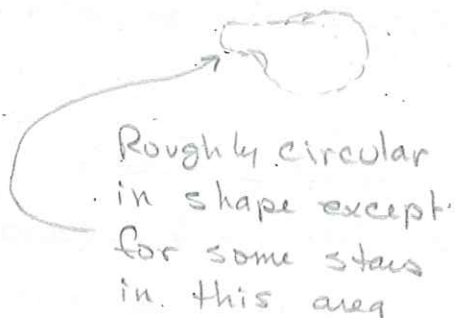 Roughly circular
in shape except
for some stars
in this area